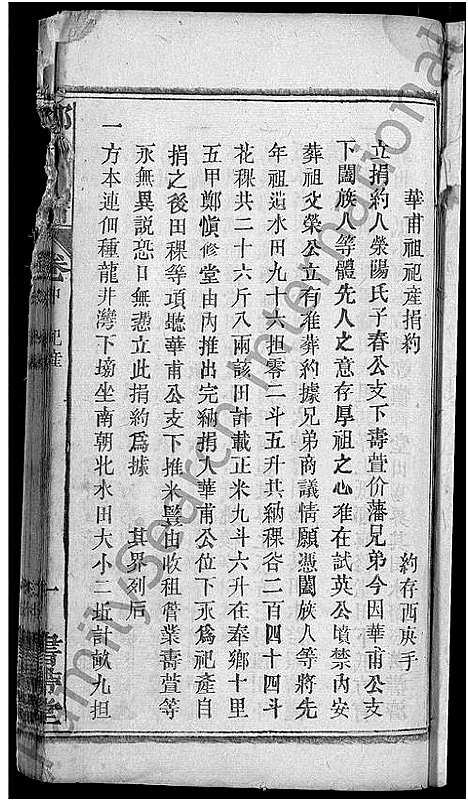 華甫祖祀產捐約
約存酉庚手
立捐約人滎陽氏子春公支下壽萱价藩兄弟今因華甫公支
下闔族人等體先人之意存厚祖之心准在試英公墳禁內安
葬祖文榮公立有准葬約據兄弟商議情願憑闔族人等將先
年祖遺水田九十六担零二斗五升共納稞谷二百四十四斗
花稞共二十六斤八兩該田計載正米九斗六升在奉鄉十里
五甲鄭愼修堂由內推出完納捐入華甫公位下永爲祀產自
捐之後田稞等項聽華甫公支下推米經由收租管業壽萱等
永無異說恐日無憑立此捐約爲據　其界列后
一方本連佃種龍井灣下塝坐南朝北水田大小二坵計畝九担
卷中　祀產
一　書帶堂
FamilySearch International